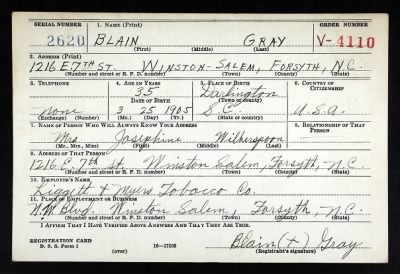 SERIAL NUMBER 1. NAME (Print) ORDER NUMBER
2620 BLAIN GRAY V-4110
(First) (Middle) (Last)
2. ADDRESS (Print)
1216 E 7TH ST. WINSTON-SALEM, FORSYTH, N.C.
(Number and street or R. F. D. number) (Town) (County) (State)
3. TELEPHONE 4. AGE IN YEARS 5. PLACE OF BIRTH 6. COUNTRY OF CITIZENSHIP
35 Darlington
DATE OF BIRTH (Town or county)
none 3 25 1905 S.C. U.S.A.
(Exchange) (No.) (Mo.) (Day) (Yr.) (State or country)
7. NAME OF PERSON WHO WILL ALWAYS KNOW YOUR ADDRESS 8. RELATIONSHIP OF THAT PERSON
Mrs Josephine Witherspoon
(Mr., Mrs., Miss) (First) (Middle) (Last)
9. ADDRESS OF THAT PERSON
1216 E. 7th st. Winston Salem, Forsyth, N.C.
(Number and street or R. F. D. number) (Town) (County) (State)
10. EMPLOYER'S NAME
Liggett & Myers Tobacco Co.
11. PLACE OF EMPLOYMENT OR BUSINESS
N.W. Blvd. Winston Salem, Forsyth, N.C.
(Number and street or R. F. D. number) (Town) (County) (State)
I AFFIRM THAT I HAVE VERIFIED ABOVE ANSWERS AND THAT THEY ARE TRUE.
REGISTRATION CARD
D. S. S. Form 1 (over) 16—17105 Blain (+) Gray
(Registrant's signature)